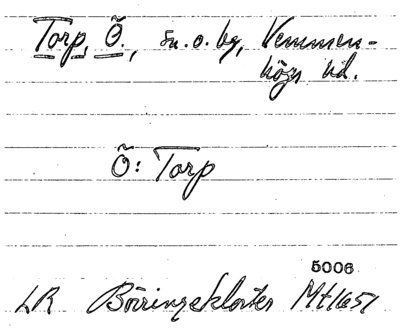 Torp, Õ., sn. o. by, Vemmen-
högs hd.
Õ: Torp
5006
LR Börringekloster Mt 1651